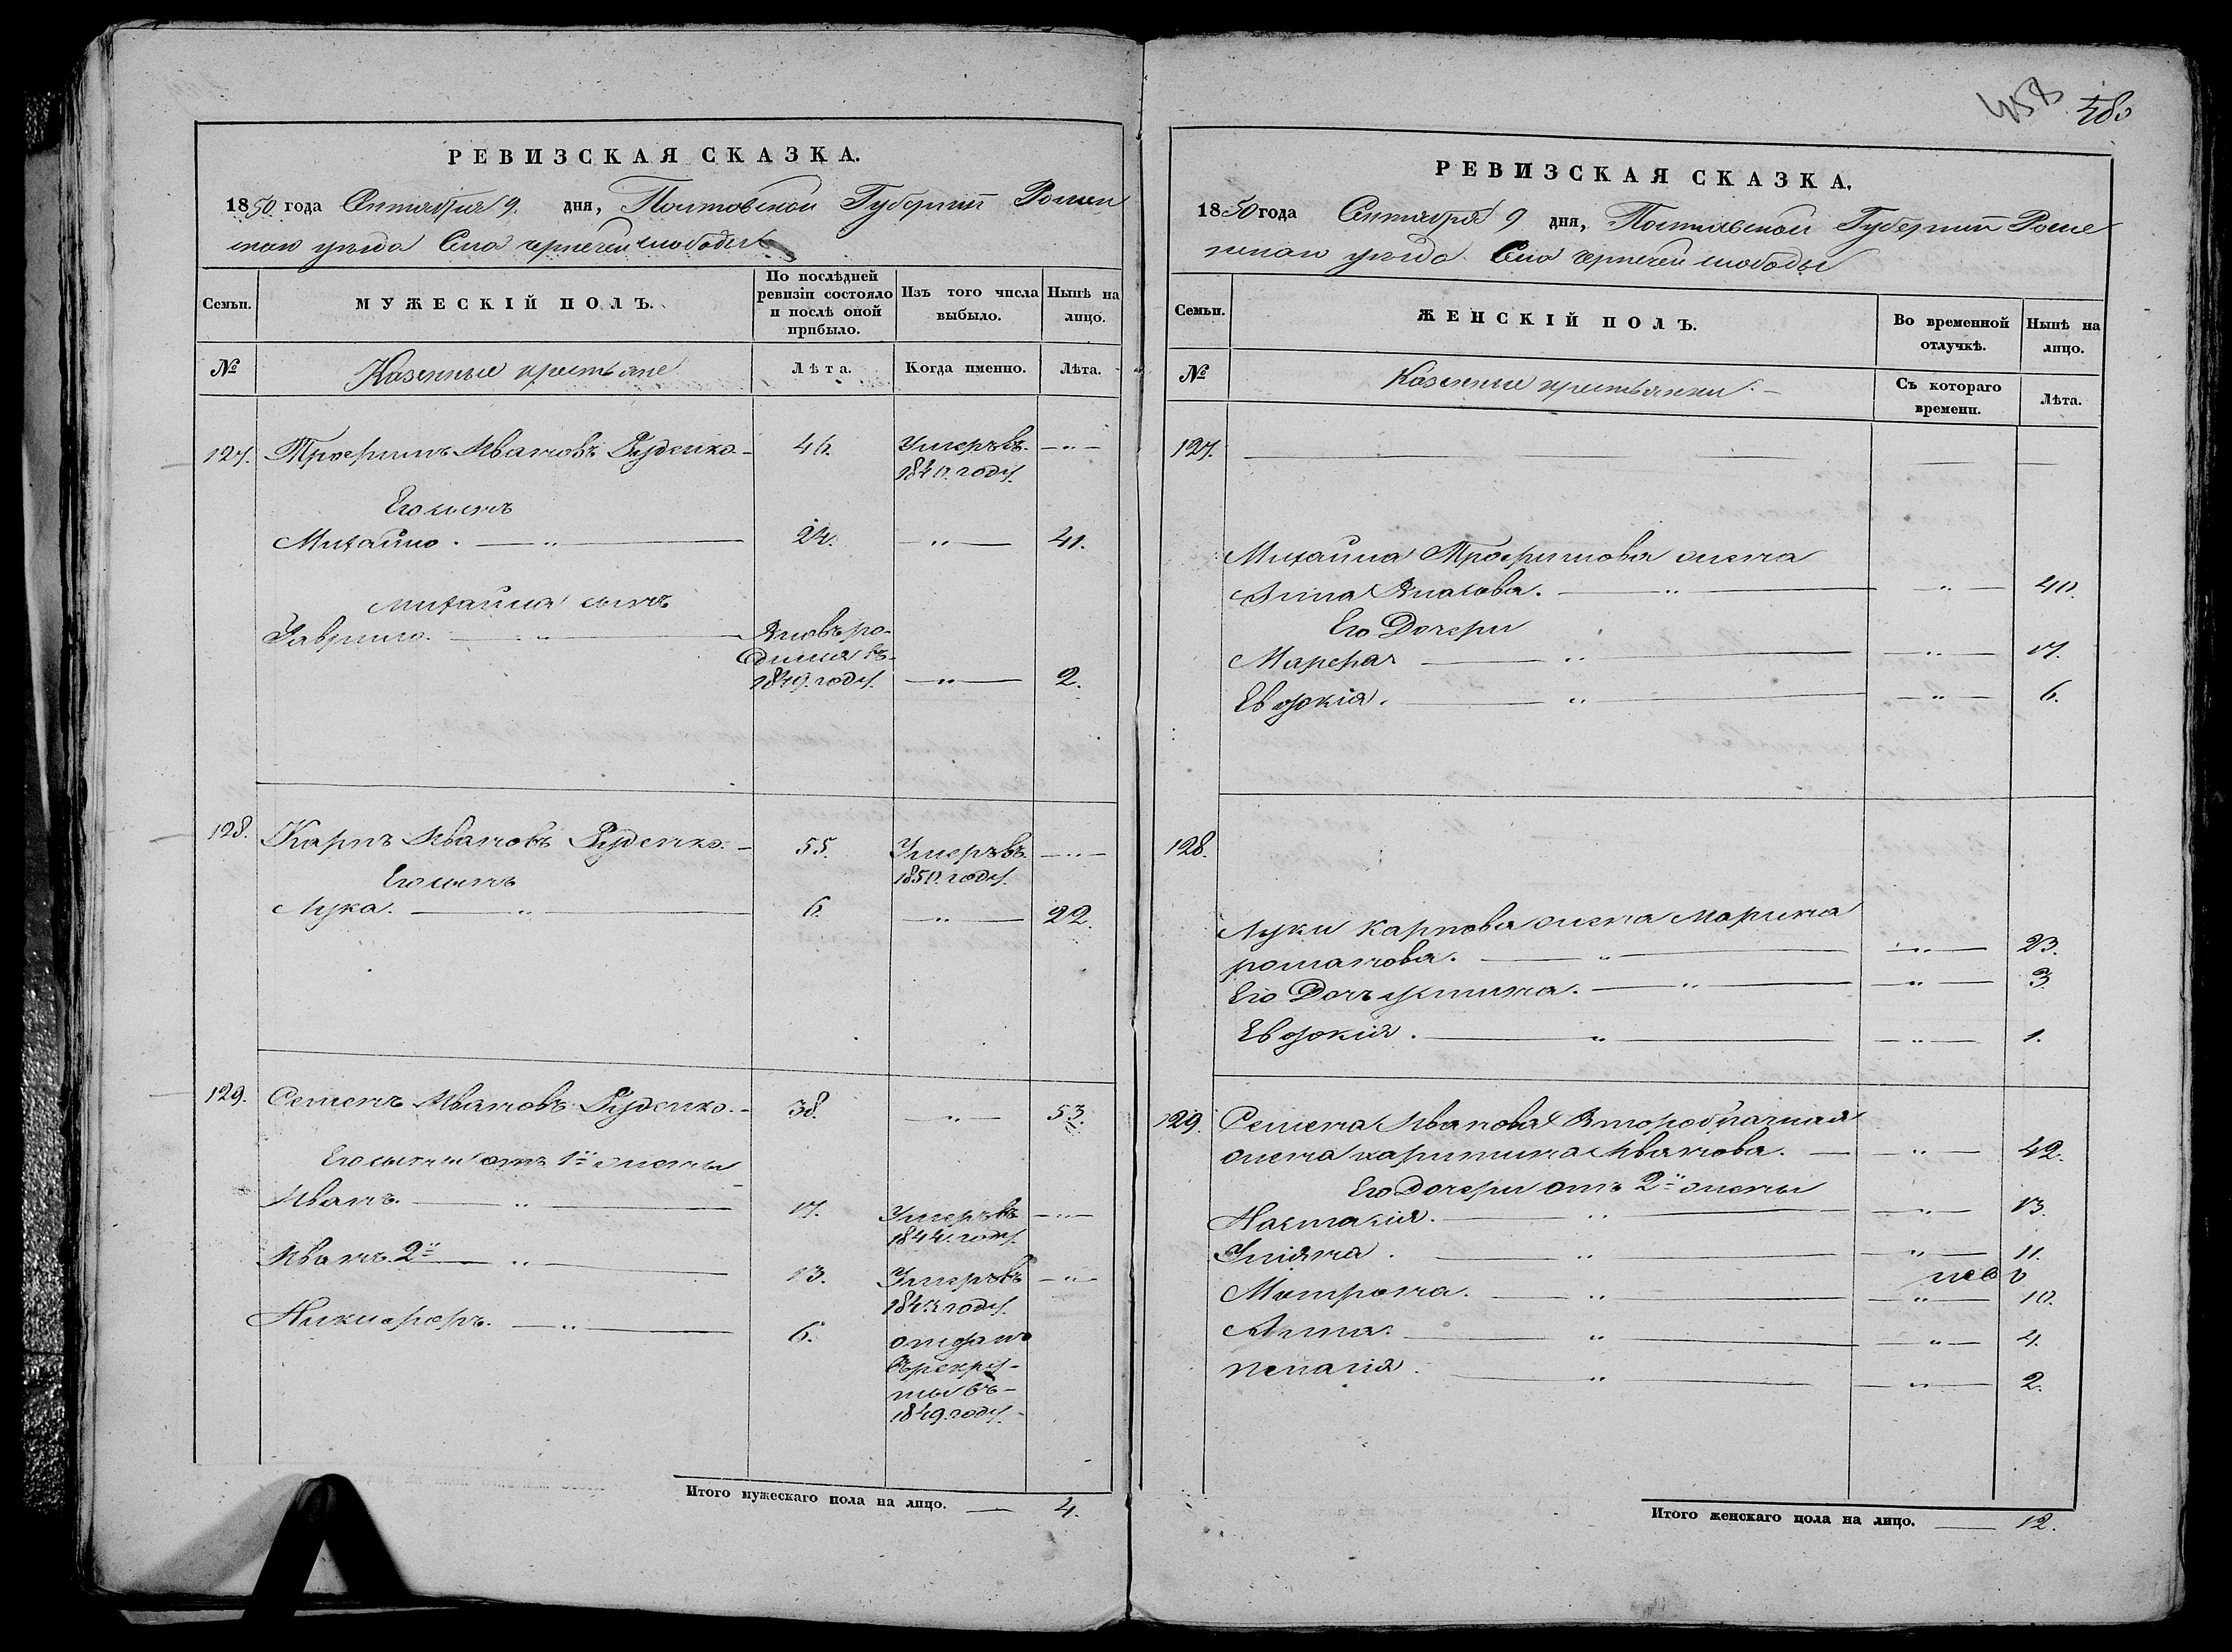 458 480
РЕВИЗСКАЯ СКАЗКА.
1850 года Сентября 9. дня, Полтавской Губерніи Ромен
скаго уезда Села черпечей слободы
Семьи. МУЖЕСКІЙ ПОЛЪ. По послѣдней ревизіи состояло и послѣ оной прибыло. Изъ того числа выбыло. Нынѣ на лицо.
№ Казенные крестьяне Лѣта. Когда именно. Лѣта.
127. Трофимъ Ивановъ Руденко. 46. Умеръ въ
1840. году.
Его сынъ
Михайло. 24. 41.
Михайла сынъ
Гаврило. Вновь ро-
дился въ
1849. году. 2.
128. Карпъ Ивановъ Руденко. 55. Умеръ въ
1850. году.
Его сынъ
Лука. 6. 22.
129. Семенъ Ивановъ Руденко. 38. 53.
Его сыны отъ 1й жены
Иванъ. 17. Умеръ въ
1844. году.
Иванъ 2й 13. Умеръ въ
году.
Никифоръ. 6. отданъ
въ рекру-
ты въ
1849. году.
Итого мужескаго пола на лицо. 4.
РЕВИЗСКАЯ СКАЗКА.
1850 года Сентября 9 дня, Полтавской Губерніи Роме
нскаго уезда Села черпечей слободы
Семьи. ЖЕНСКІЙ ПОЛЪ. Во временной отлучкѣ. Нынѣ на лицо.
№ Казенные крестьянки. Съ котораго времени. Лѣта.
127.
Михайла Трофимова жена
Анна Власова. 40.
Его Дочери
Марфа 17.
Евдокія. 6.
128.
Луки Карпова жена Марина
романова. 23.
Его Дочь устина. 3.
Евдокія. 1.
129. Семена Иванова Второбрачная
жена харитина Иванова. 42.
Его Дочери отъ 2й жены
Настасія. 13.
Уліяна. 11.
Матрона. 10.
Анна. 4.
пелагія. 2.
Итого женскаго пола на лицо. 12.